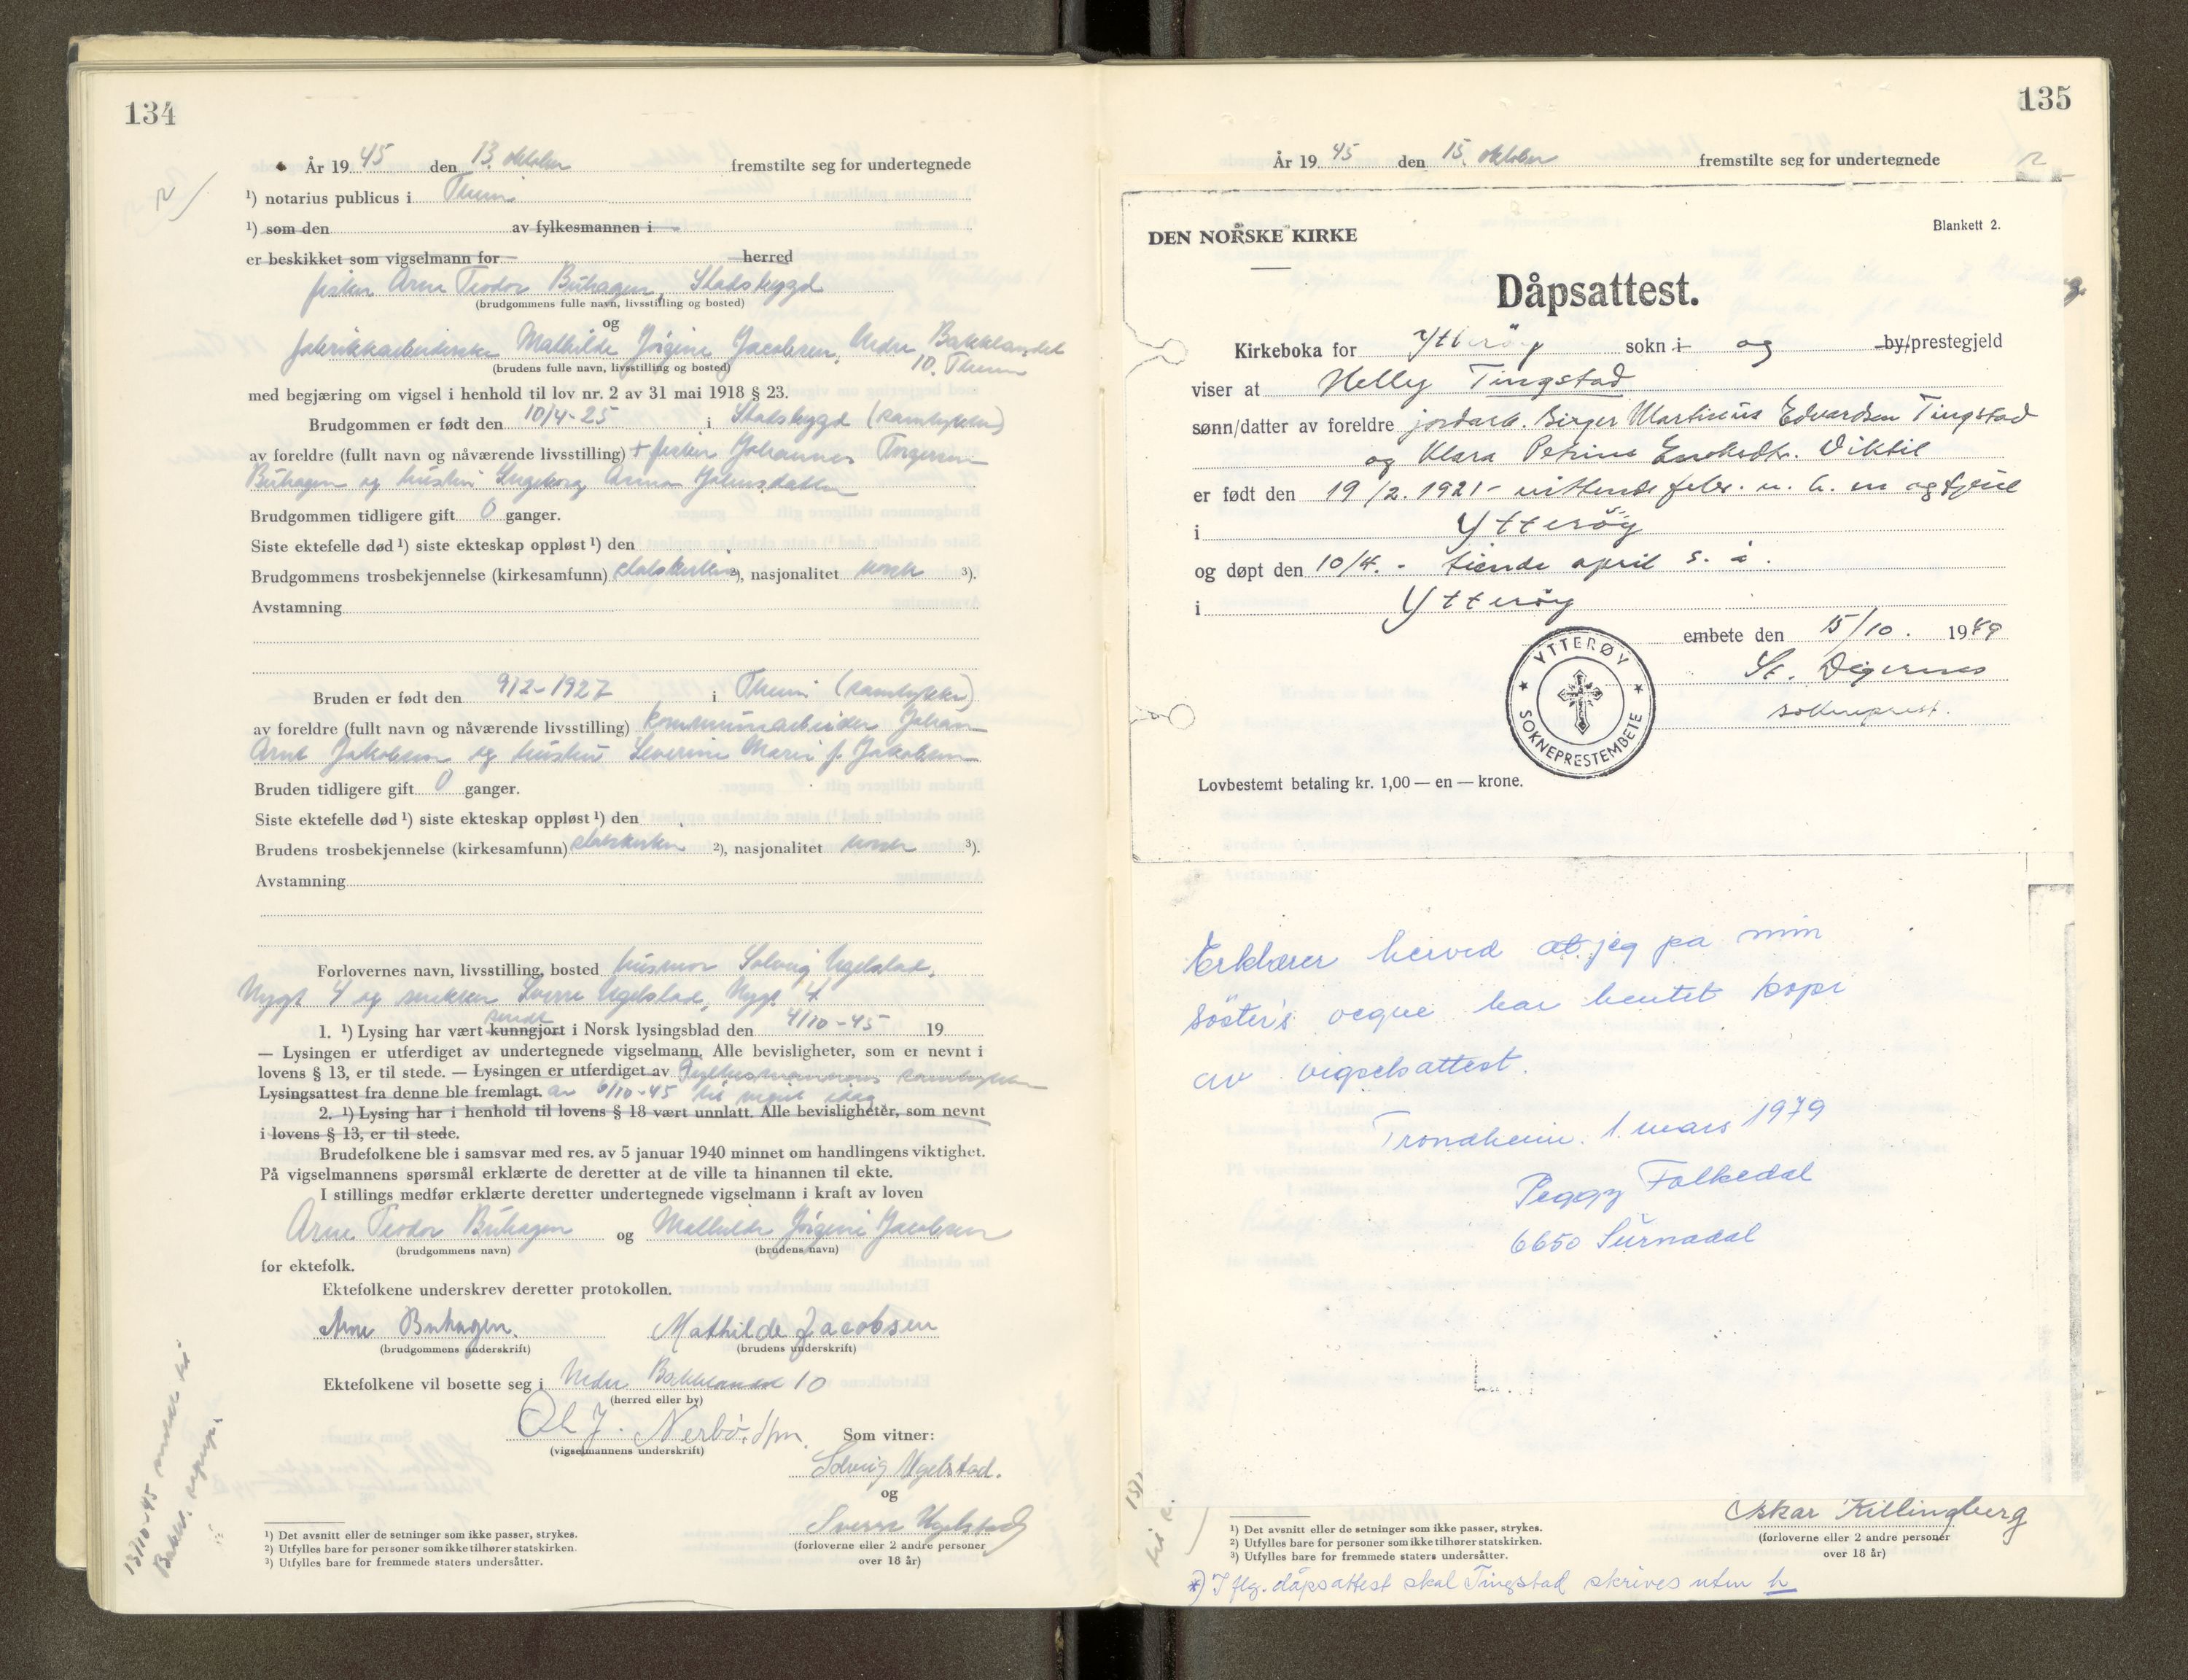 134
År 19 45 den 13. oktober fremstilte seg for undertegnede
¹) notarius publicus i Thrm.
¹) som den av fylkesmannen i
er beskikket som vigselmann for herred
fisker Arne Teodor Buhagen, Stadsbygd
(brudgommens fulle navn, livsstilling og bosted)
og
fabrikkarbeiderske Mathilde Jørgine Jacobsen, Nedre Bakklandet
10. Thrm
(brudens fulle navn, livsstilling og bosted)
med begjæring om vigsel i henhold til lov nr. 2 av 31 mai 1918 § 23.
Brudgommen er født den 10/4-25 i Stadsbygd (samtykke)
av foreldre (fullt navn og nåværende livsstilling) + fisker Johannes Torgersen
Buhagen og hustru Ingeborg Anna Johnsdatter
Brudgommen tidligere gift 0 ganger.
Siste ektefelle død ¹) siste ekteskap oppløst ¹) den
Brudgommens trosbekjennelse (kirkesamfunn) statskirken ²), nasjonalitet norsk ³).
Avstamning
Bruden er født den 9/2-1927 i Thrm (samtykke)
av foreldre (fullt navn og nåværende livsstilling) kommunearbeider Johan
Arnt Jakobsen og hustru Severine Marie f. Jakobsen
Bruden tidligere gift 0 ganger.
Siste ektefelle død ¹) siste ekteskap oppløst ¹) den
Brudens trosbekjennelse (kirkesamfunn) statskirken ²), nasjonalitet norsk ³).
Avstamning
Forlovernes navn, livsstilling, bosted husmor Solveig Ugelstad,
Nygt 4 og snekker Sverre Ugelstad, Nygt 4
1. ¹) Lysing har vært kunngjort sendt i Norsk lysingsblad den 4/10-45 19
— Lysingen er utferdiget av undertegnede vigselmann. Alle bevisligheter, som er nevnt i
lovens § 13, er til stede. — Lysingen er utferdiget av Fylkesmannens samtykke
Lysingsattest fra denne ble fremlagt. av 6/10-45 til vigsel idag
2. ¹) Lysing har i henhold til lovens § 18 vært unnlatt. Alle bevisligheter, som nevnt
i lovens § 13, er til stede.
Brudefolkene ble i samsvar med res. av 5 januar 1940 minnet om handlingens viktighet.
På vigselmannens spørsmål erklærte de deretter at de ville ta hinannen til ekte.
I stillings medfør erklærte deretter undertegnede vigselmann i kraft av loven
Arne Teodor Buhagen og Mathilde Jørgine Jacobsen
(brudgommens navn) (brudens navn)
for ektefolk.
Ektefolkene underskrev deretter protokollen.
Arne Buhagen. Mathilde Jacobsen
(brudgommens underskrift) (brudens underskrift)
Ektefolkene vil bosette seg i Nedre Bakklandet 10
(herred eller by)
Ole J. Nerbö. dfm.
(vigselmannens underskrift)
Som vitner:
Solveig Ugelstad.
og
Sverre Ugelstad
(forloverne eller 2 andre personer
over 18 år)
13/10-45
¹) Det avsnitt eller de setninger som ikke passer, strykes.
²) Utfylles bare for personer som ikke tilhører statskirken.
³) Utfylles bare for fremmede staters undersåtter.
135
År 19 45 den 15. oktober fremstilte seg for undertegnede
DEN NORSKE KIRKE
Blankett 2.
Dåpsattest.
Kirkeboka for Ytterøy sokn i og by/prestegjeld
viser at Nelly Tingstad
sønn/datter av foreldre jordarb. Birger Martinius Edvardsen Tingstad
og Klara Petrine Enoksdtr. Viktil
er født den 19/2. 1921 - nittende febr. n. h. en og tjue
i Ytterøy
og døpt den 10/4. - tiende april s. å.
i Ytterøy
embete den 15/10. 1949
St. Digernes
sokneprest.
YTTERØY
SOKNEPRESTEMBETE
Lovbestemt betaling kr. 1,00 — en — krone.
Erklærer herved at jeg pa min
söster's vegne har hentet kopi
av vigselsattest.
Trondheim. 1. mars 1979
Peggy Falkedal
6650 Surnadal
Oskar Killingberg
(forloverne eller 2 andre personer
over 18 år)
¹) Det avsnitt eller de setninger som ikke passer, strykes.
²) Utfylles bare for personer som ikke tilhører statskirken.
³) Utfylles bare for fremmede staters undersåtter.
*) I flg. dåpsattest skal Tingstad skrives uten h